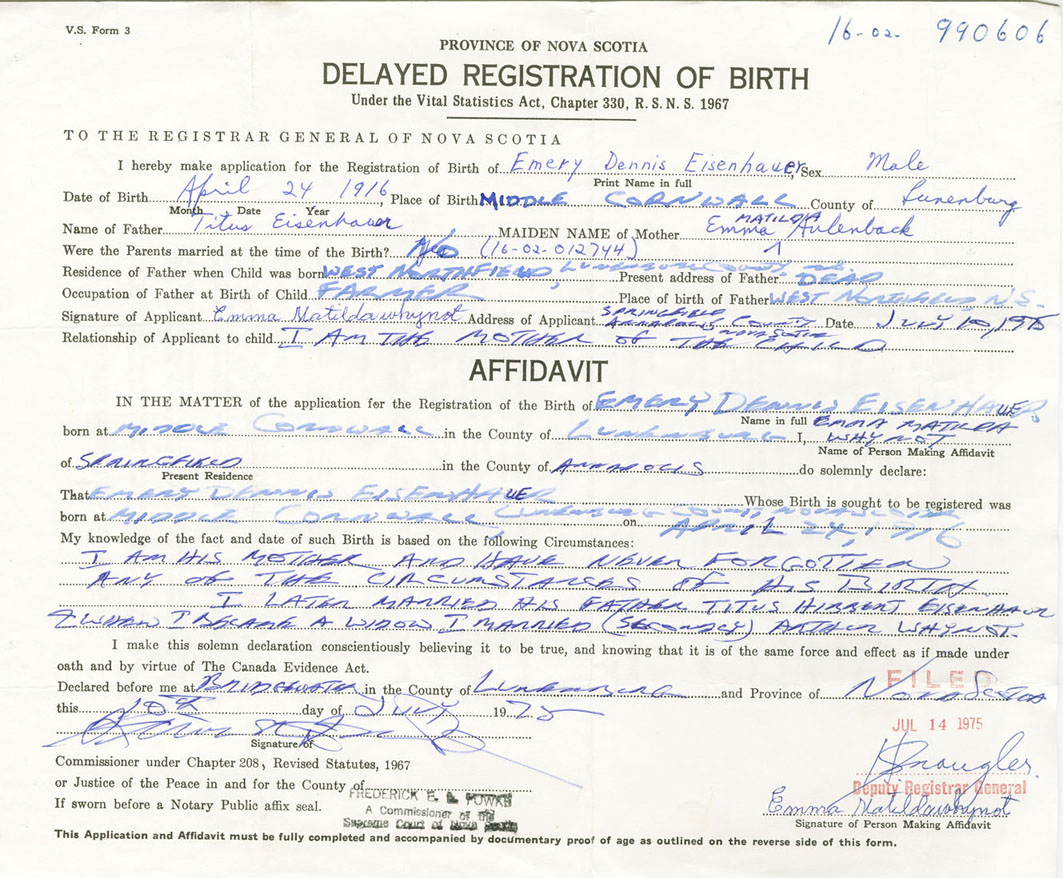 V.S. Form 3
16-02- 990606
PROVINCE OF NOVA SCOTIA
DELAYED REGISTRATION OF BIRTH
Under the Vital Statistics Act, Chapter 330, R. S. N. S. 1967
TO THE REGISTRAR GENERAL OF NOVA SCOTIA
I hereby make application for the Registration of Birth of Emery Dennis Eisenhauer, Sex Male
Print Name in full
Date of Birth April 24 1916, Place of Birth MIDDLE CORNWALL County of Lunenburg
Month Date Year
MATILDA
Name of Father Titus Eisenhauer MAIDEN NAME of Mother Emma Aulenback
Were the Parents married at the time of the Birth? No (16-02-012744)
Residence of Father when Child was born WEST NORTHFIELD, LUNENBURG COUNTY NS Present address of Father DEAD
Occupation of Father at Birth of Child FARMER Place of birth of Father WEST NORTHFIELD N.S.
Signature of Applicant Emma Matilda whynot Address of Applicant SPRINGFIELD ANNAPOLIS COUNTY NOVA SCOTIA Date JULY 10, 1975
Relationship of Applicant to child I AM THE MOTHER OF THE CHILD
AFFIDAVIT
IN THE MATTER of the application for the Registration of the Birth of EMERY DENNIS EISENHAUER
Name in full
born at MIDDLE CORNWALL in the County of LUNENBURG I, EMMA MATILDA WHYNOT
Name of Person Making Affidavit
of SPRINGFIELD in the County of ANNAPOLIS do solemnly declare:
Present Residence
That EMERY DENNIS EISENHAUER Whose Birth is sought to be registered was
born at MIDDLE CORNWALL, LUNENBURG COUNTY, NOVA SCOTIA on APRIL 24, 1916
My knowledge of the fact and date of such Birth is based on the following Circumstances:
I AM HIS MOTHER AND HAVE NEVER FORGOTTEN
ANY OF THE CIRCUMSTANCES OF HIS BIRTH
I LATER MARRIED HIS FATHER TITUS HIBBERT EISENHAUER
& WHEN I BECAME A WIDOW I MARRIED (SECONDLY) ARTHUR WHYNOT.
I make this solemn declaration conscientiously believing it to be true, and knowing that it is of the same force and effect as if made under
oath and by virtue of The Canada Evidence Act.
Declared before me at BRIDGEWATER in the County of LUNENBURG and Province of NOVA SCOTIA
FILED
this 10th day of JULY 1975
JUL 14 1975
Signature of
Commissioner under Chapter 208, Revised Statutes, 1967
or Justice of the Peace in and for the County of
Deputy Registrar General
FREDERICK E. L. FOWKE
If sworn before a Notary Public affix seal.
A Commissioner of the
Supreme Court of Nova Scotia
Emma Matilda whynot
Signature of Person Making Affidavit
This Application and Affidavit must be fully completed and accompanied by documentary proof of age as outlined on the reverse side of this form.